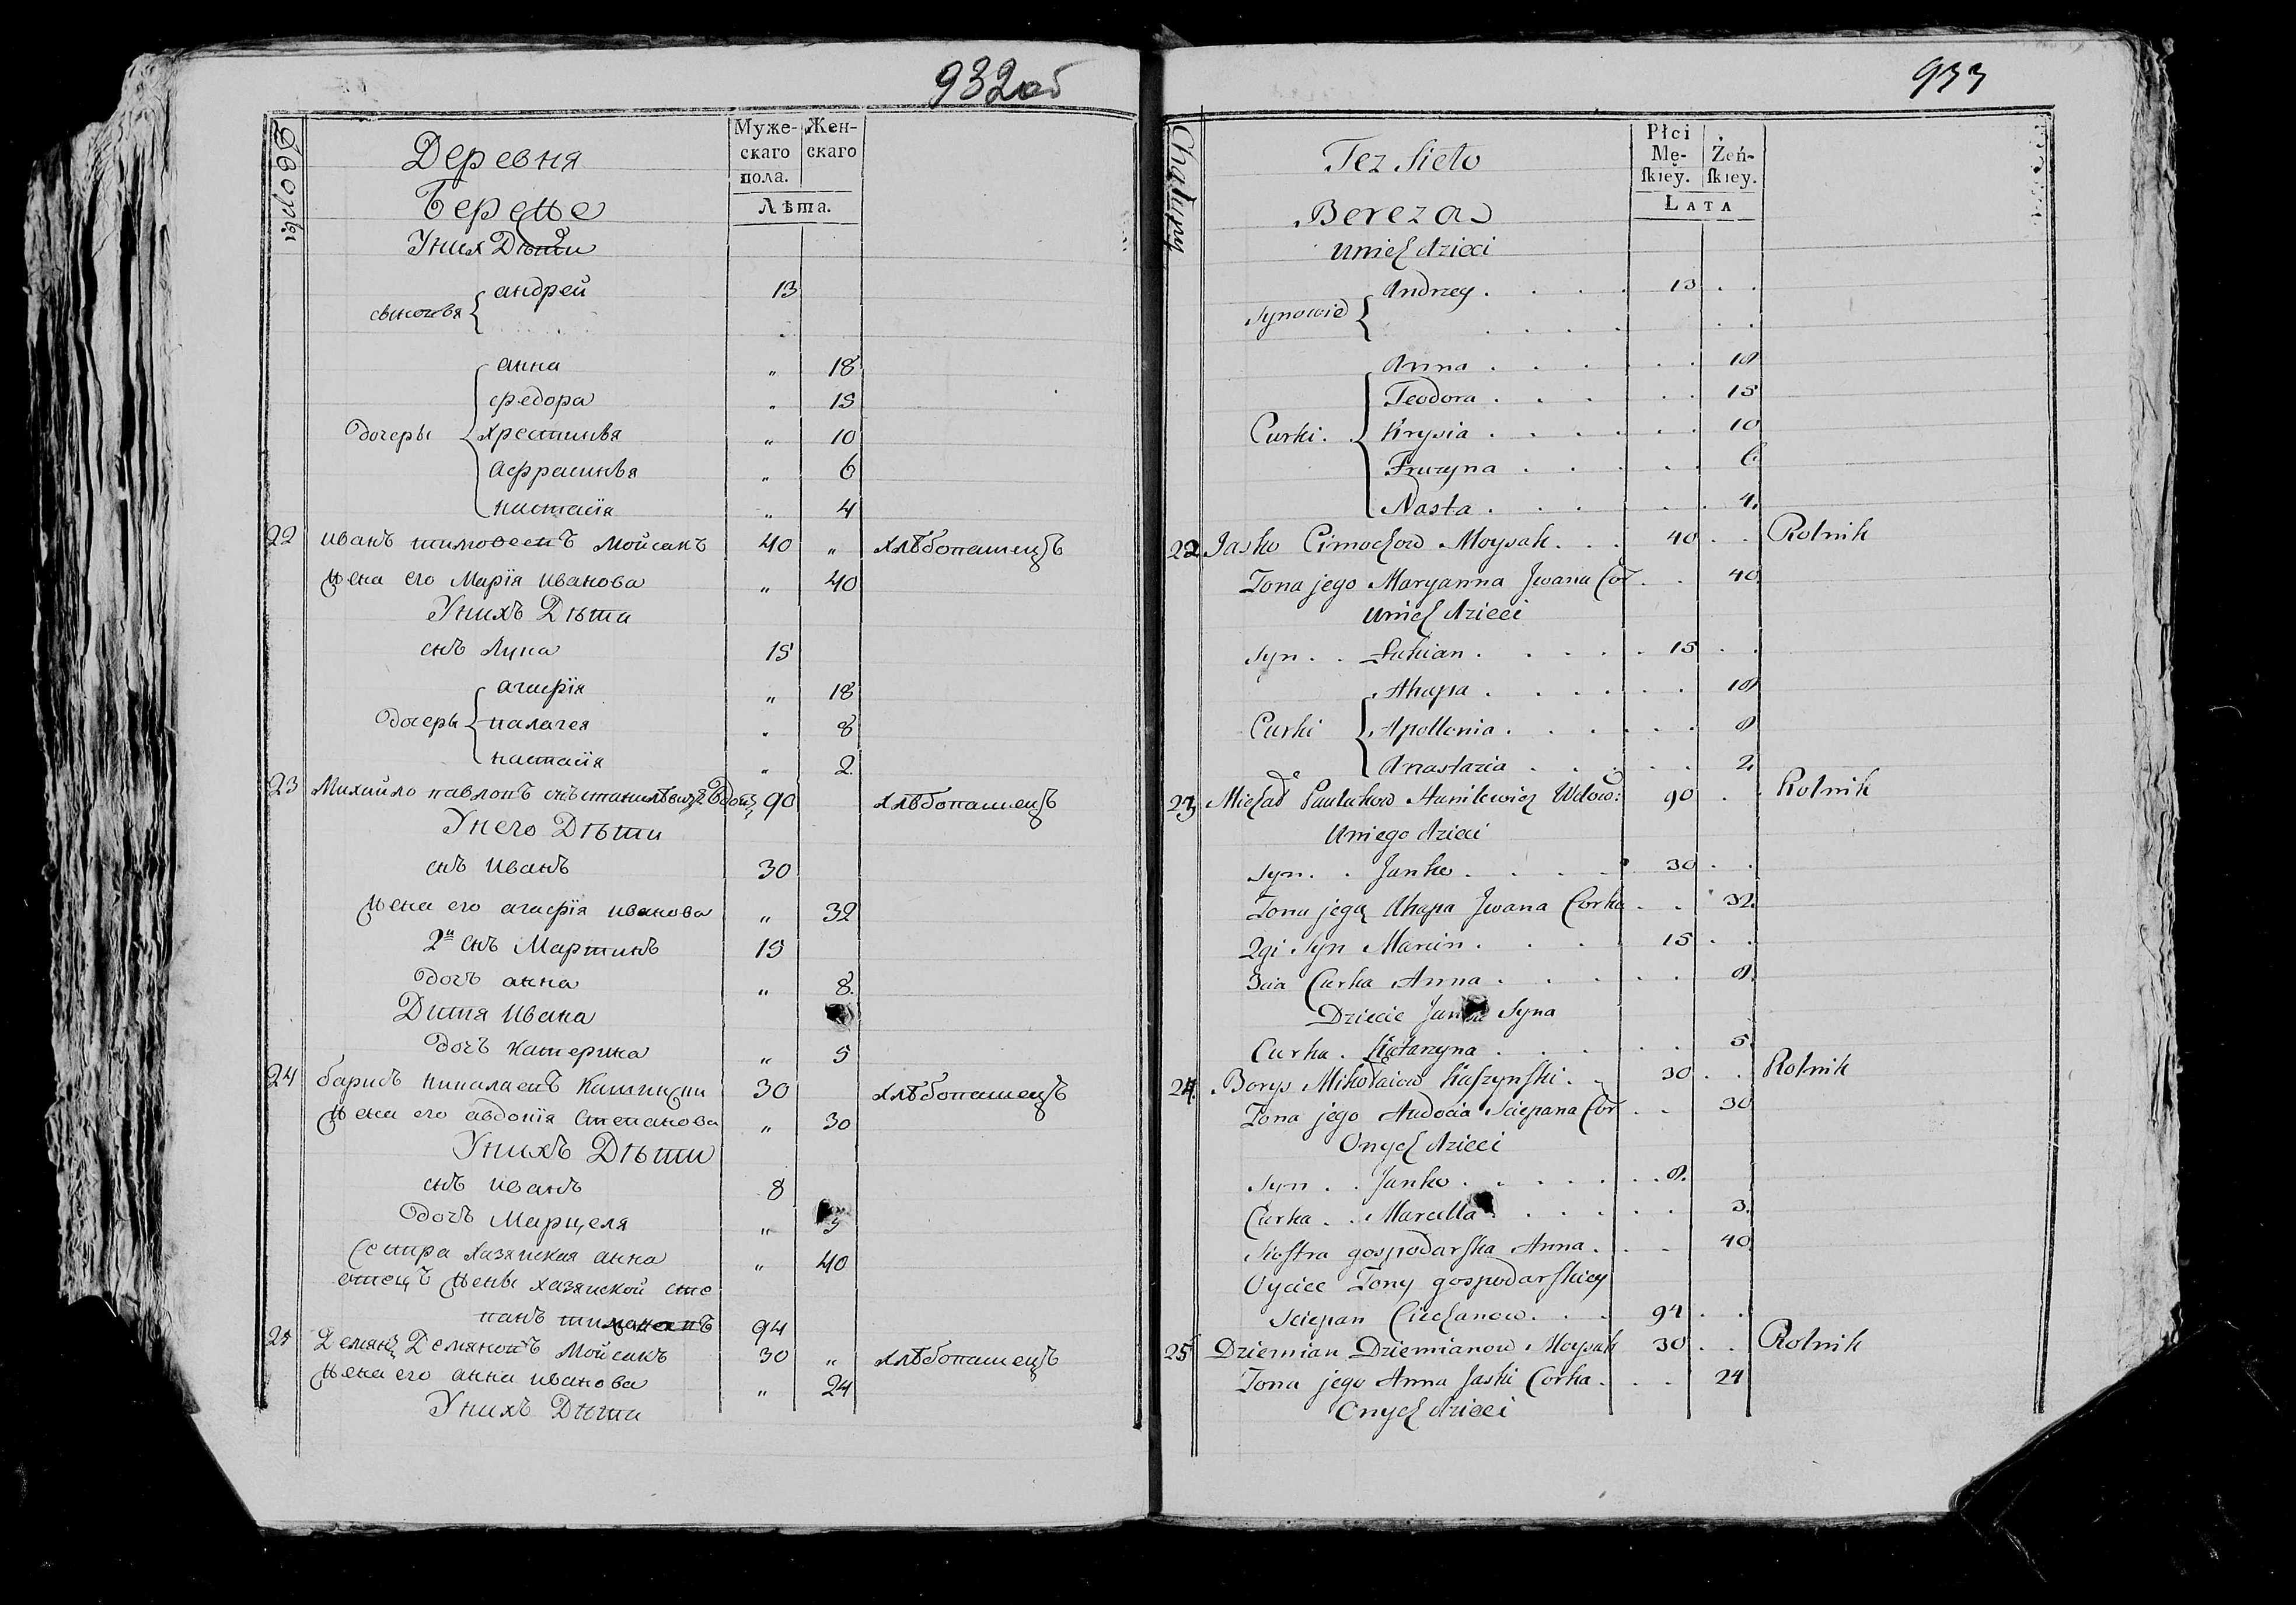 932об
Дворы
Деревня
Мужескаго пола.
Женскаго
Лѣта.
Береце
У них Дѣти
сыновя { андрей 13
дочеры { анна „ 18
федора „ 15
хрестинѣя „ 10
Афрасинѣя „ 6
настасія „ 4
22 иванъ тимовеепъ Мойсакъ 40 „ хлѣбопашецъ
жена его Марія иванова „ 40
У нихъ Дѣти
снъ Лука 15
дочеры { агафія „ 18
палагея „ 8
настасія „ 2
23 Михайло павлопъ снъ станилѣвичъ Вдовецъ 90 хлѣбопашецъ
У него Дѣти
снъ иванъ 30
жена его агафія иванова „ 32
2й снъ Мартинъ 15
дочъ анна „ 8.
Дитя ивана
дочъ катерина „ 5
24 барисъ никалаепъ Кашински 30 хлѣбопашецъ
жена его авдотія Степанова „ 30
У нихъ Дѣти
снъ иванъ 8
дочъ Марцеля „ 3
Сестра хазяиская анна „ 40
отецъ жены хазяиской сте
панъ 94
25 Демянъ Демянопъ Мойсакъ 30 „ хлѣбопашецъ
жена его анна иванова „ 24
У нихъ Дѣти
933
Chałupy
Tez Sieło
Płci Mę-skiey.
Żeń-skiey.
LATA
Bereza
Unich dzieci
Synowie { Andrzey . . . . 13 . .
Curki . { Anna . . . . . 18
Teodora . . . . . 15
Krysia . . . . . 10
Fruzyna . . . . . 6
Nasta . . . . . 4.
22 Jasko Cimochow Moysak . . . 40 . . Rolnik
Zona jego Maryanna Jwana Cor . . 40.
Unich dzieci
Syn . . Łukian . . . . . 15 . .
Curki { Ahapa . . . . . 18
Apollonia . . . . . 8
Anastazia . . . . . 2.
23 Michał Pauluków Stanilewicz Wdow: 90 . . Rolnik
Uniego dzieci
Syn . . Janko . . . . 30 . .
Zona jego Ahapa Jwana Corka . . 32.
2gi Syn Marcin . . . . 15 . .
3cia Curka Anna . . . . . 8.
Dziecie Janka Syna
Curka . Katarzyna . . . . . 5.
24 Borys Mikołaiow Kaszynski . . 30 . . Rolnik
Zona jego Audocia Sciepana Cor . . 30
Onych dzieci
Syn . . Janko . . . . . 8.
Curka . . Marcella . . . . . 3.
Siostra gospodarska Anna . . . 40.
Oyciec Zony gospodarskiey
Sciepan Ciechanow . . . 94 . .
25 Dziemian Dziemianow Moysak 30 . . Rolnik
Zona jego Anna Jaski Corka . . . 24
Onych dzieci